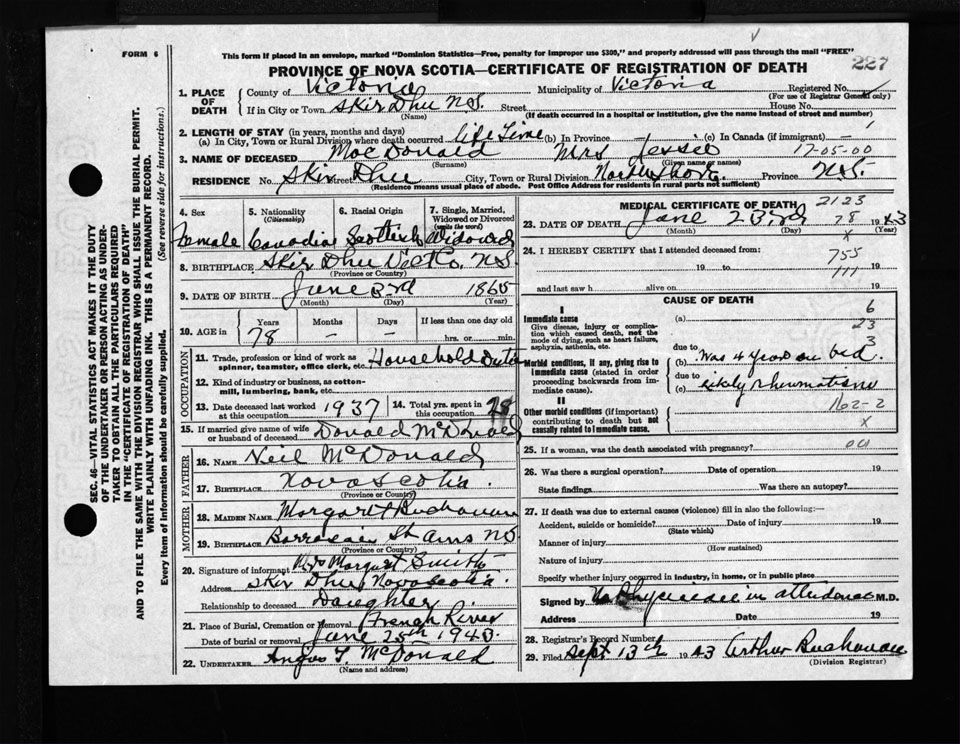 FORM 6
This form if placed in an envelope, marked "Dominion Statistics—Free, penalty for improper use $300," and properly addressed will pass through the mail "FREE"
227
PROVINCE OF NOVA SCOTIA—CERTIFICATE OF REGISTRATION OF DEATH
1. PLACE OF DEATH { County of Victoria Municipality of Victoria Registered No.
(For use of Registrar General only)
If in City or Town Skir Dhu N.S. Street House No.
(Name) (If death occurred in a hospital or institution, give the name instead of street and number)
2. LENGTH OF STAY (in years, months and days)
(a) In City, Town or Rural Division where death occurred life Time (b) In Province — (c) In Canada (if immigrant) —
3. NAME OF DECEASED MacDonald Mrs Jessie 17-05-00
(Surname) (Given name or names)
RESIDENCE No. Skir Dhu Street City, Town or Rural Division North Shore Province N.S.
(Residence means usual place of abode. Post Office Address for residents in rural parts not sufficient)
4. Sex 5. Nationality (Citizenship) 6. Racial Origin 7. Single, Married, Widowed or Divorced (write the word)
Female Canadian Scottish Widowed
8. BIRTHPLACE Skir Dhu Vic Co. N.S
(Province or Country)
9. DATE OF BIRTH June 3rd 1865
(Month) (Day) (Year)
10. AGE in { Years Months Days If less than one day old
78 — — hrs. or min.
OCCUPATION
11. Trade, profession or kind of work as spinner, teamster, office clerk, etc. Household Duties
12. Kind of industry or business, as cotton-mill, lumbering, bank, etc.
13. Date deceased last worked at this occupation 1937 14. Total yrs. spent in this occupation
15. If married give name of wife or husband of deceased Donald McDonald
FATHER
16. NAME Neil McDonald
17. BIRTHPLACE Nova Scotia
(Province or Country)
MOTHER
18. MAIDEN NAME Margaret Buchanan
19. BIRTHPLACE St Anns N.S
(Province or Country)
20. Signature of informant Mrs Margaret Smith
Address Skir Dhu Nova Scotia.
Relationship to deceased Daughter
21. Place of Burial, Cremation or Removal French River
Date of burial or removal June 25th 1943.
22. UNDERTAKER Angus T. McDonald
(Name and address)
MEDICAL CERTIFICATE OF DEATH 2123
23. DATE OF DEATH June 23rd 1943
78
(Month) (Day) (Year)
x
24. I HEREBY CERTIFY that I attended deceased from:
755
19 to 19
111
and last saw h alive on 19
CAUSE OF DEATH
I
6
Immediate cause (a)
23
Give disease, injury or complication which caused death, not the mode of dying, such as heart failure, asphyxia, asthenia, etc.
3
due to
Morbid conditions, if any, giving rise to immediate cause (stated in order proceeding backwards from immediate cause). (b) Was 4 years on bed.
due to
(c) likely rheumatism
II
162-2
Other morbid conditions (if important) contributing to death but not causally related to immediate cause.
x
25. If a woman, was the death associated with pregnancy?
26. Was there a surgical operation? Date of operation 19
State findings Was there an autopsy?
27. If death was due to external causes (violence) fill in also the following:—
Accident, suicide or homicide? Date of injury 19
(State which)
Manner of injury
(How sustained)
Nature of injury
Specify whether injury occurred in industry, in home, or in public place
Signed by No Physician in attendance M.D.
Address Date 19
28. Registrar's Record Number
29. Filed Sept 13th 1943 Arthur Buchanan
(Division Registrar)
SEC. 46—VITAL STATISTICS ACT MAKES IT THE DUTY
OF THE UNDERTAKER OR PERSON ACTING AS UNDER-
TAKER TO OBTAIN ALL THE PARTICULARS REQUIRED
IN THE "CERTIFICATE OF REGISTRATION OF DEATH"
AND TO FILE THE SAME WITH THE DIVISION REGISTRAR WHO SHALL ISSUE THE BURIAL PERMIT.
WRITE PLAINLY WITH UNFADING INK. THIS IS A PERMANENT RECORD.
Every item of information should be carefully supplied. (See reverse side for instructions.)